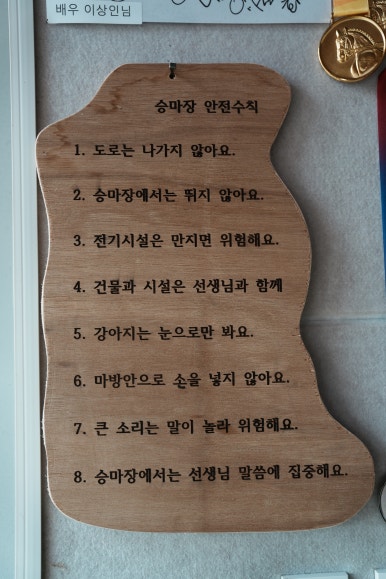 배우 이상인님
승마장 안전수칙
1. 도로는 나가지 않아요.
2. 승마장에서는 뛰지 않아요.
3. 전기시설은 만지면 위험해요.
4. 건물과 시설은 선생님과 함께
5. 강아지는 눈으로만 봐요.
6. 마방안으로 손을 넣지 않아요.
7. 큰 소리는 말이 놀라 위험해요.
8. 승마장에서는 선생님 말씀에 집중해요.